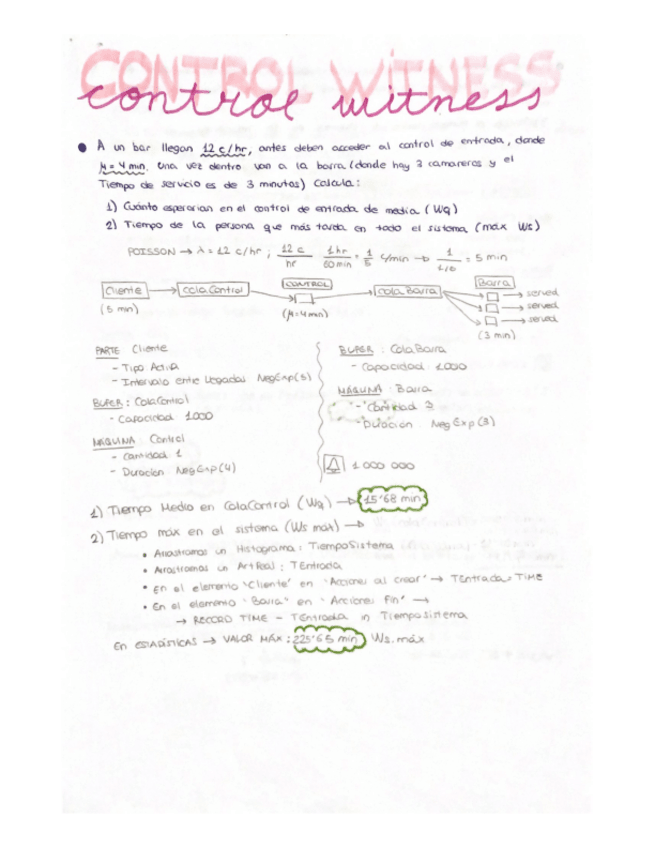 CONTROL WITNESS
control witness
A un bar llegan 12 c/hr, antes deben acceder al control de entrada, donde
μ = 4 min. Una vez dentro van a la barra (donde hay 3 camareros y el
Tiempo de servicio es de 3 minutos) Calcula:
1) Cuánto esperarían en el control de entrada de media (Wq)
2) Tiempo de la persona que más tarda en todo el sistema (máx Ws)
POISSON → λ = 12 c/hr ; 12 c / hr 1 hr / 60 min = 1 / 5 c/min → 1 / 1/5 = 5 min
Cliente → cola Control → CONTROL → cola Barra → Barra → served
→ served
→ served
(5 min) (μ = 4 min) (3 min)
PARTE: Cliente
- Tipo Activa
- Intervalo entre llegadas NegExp(5)
BUFER: ColaControl
- Capacidad: 1000
MAQUINA: Control
- Cantidad 1
- Duración: NegExp(4)
BUFER: Cola Barra
- Capacidad: 1000
MAQUINA: Barra
- Cantidad 3
- Duracion: NegExp(3)
1 000 000
1) Tiempo Medio en ColaControl (Wq) → 15'68 min
2) Tiempo máx en el sistema (Ws max) →
• Arrastramos un Histograma: TiempoSistema
• Arrastramos un Art Real: TEntrada
• En el elemento 'Cliente' en 'Acciones al crear' → TEntrada = TIME
• En el elemento 'Barra' en 'Acciones Fin' →
→ RECORD TIME - TEntrada in TiempoSistema
En ESTADÍSTICAS → VALOR MÁX: 225'65 min Ws. máx